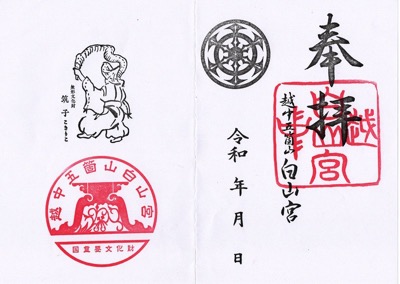 奉拝
越中五箇山
白山宮
令和 年 月 日
無形文化財
筑子
こきりこ
越中五箇山白山宮
国重要文化財